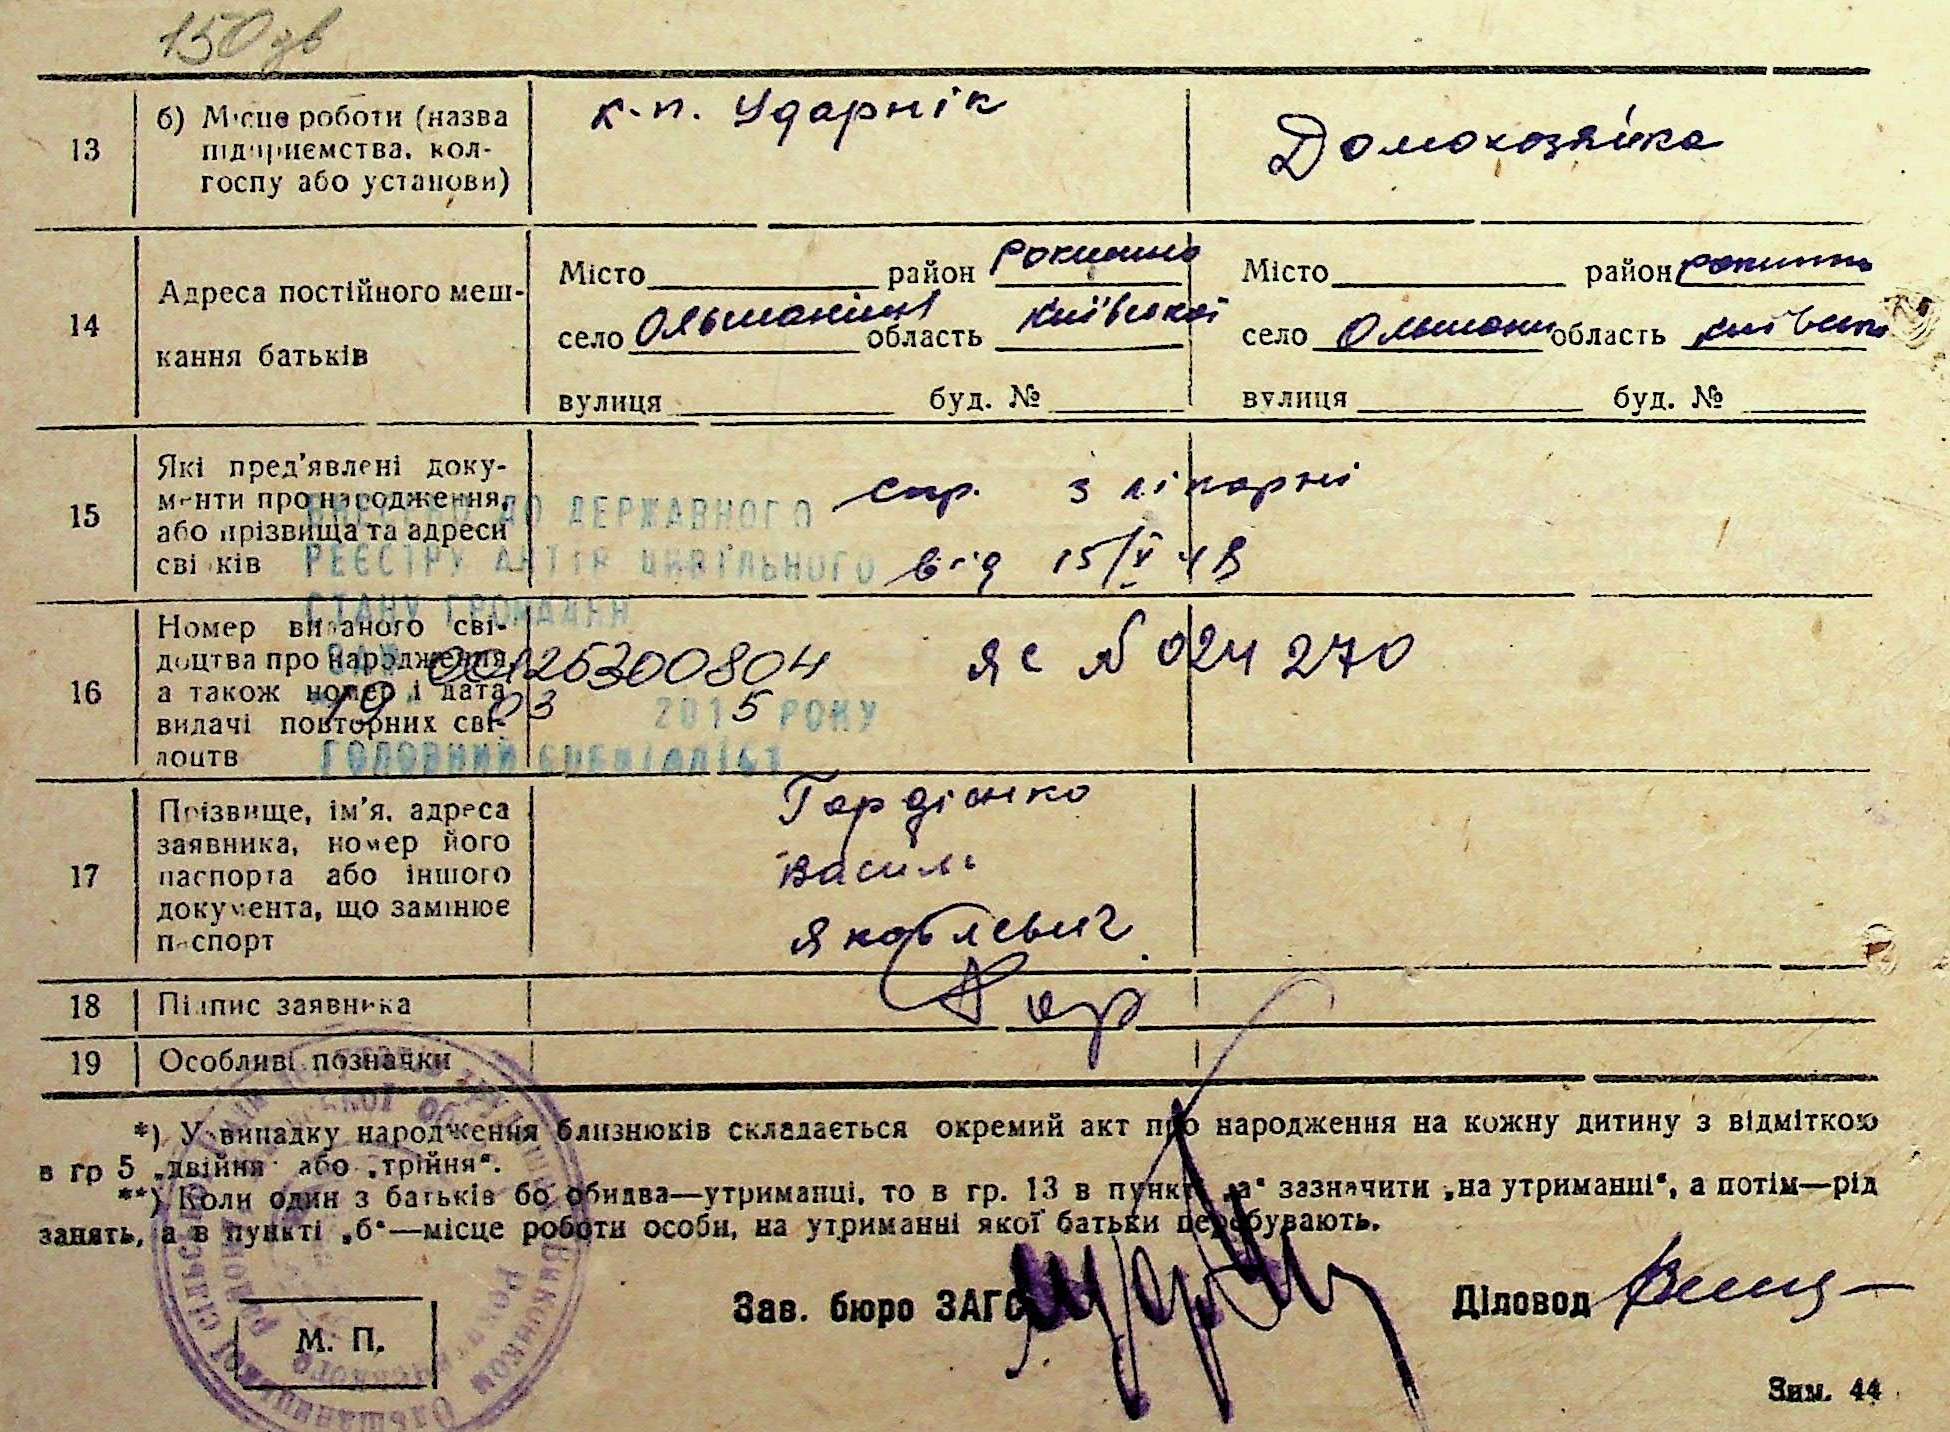 150 зв
13
б) Місце роботи (назва
підприємства, кол-
госпу або установи)
к-п. Ударнік
Домохозяйка
14
Адреса постійного меш-
кання батьків
Місто район Рокитно
село Ольшаниця область Київської
вулиця буд. №
Місто район
село область
вулиця буд. №
15
Які пред'явлені доку-
менти про народження,
або прізвища та адреси
свідків
спр. з лікарні
від 15/V 48
ВНЕСЕНО ДО ДЕРЖАВНОГО
РЕЄСТРУ АКТІВ ЦИВІЛЬНОГО
СТАНУ ГРОМАДЯН
00125300804
19 03 2015 РОКУ
ГОЛОВНИЙ СПЕЦІАЛІСТ
16
Номер виданого сві-
доцтва про народження,
а також номер і дата
видачі повторних сві-
доцтв
ЯС № 024270
17
Прізвище, ім'я, адреса
заявника, номер його
паспорта або іншого
документа, що замінює
паспорт
Гордієнко
Василь
Яковлевич
18
Підпис заявника
19
Особливі позначки
*) У випадку народження близнюків складається окремий акт про народження на кожну дитину з відміткою
в гр 5 „двійня" або „трійня".
**) Коли один з батьків бо обидва—утриманці, то в гр. 13 в пункті „а" зазначити „на утриманні", а потім—рід
занять, а в пункті „б"—місце роботи особи, на утриманні якої батьки перебувають.
Зав. бюро ЗАГС
Діловод
М. П.
Зим. 44